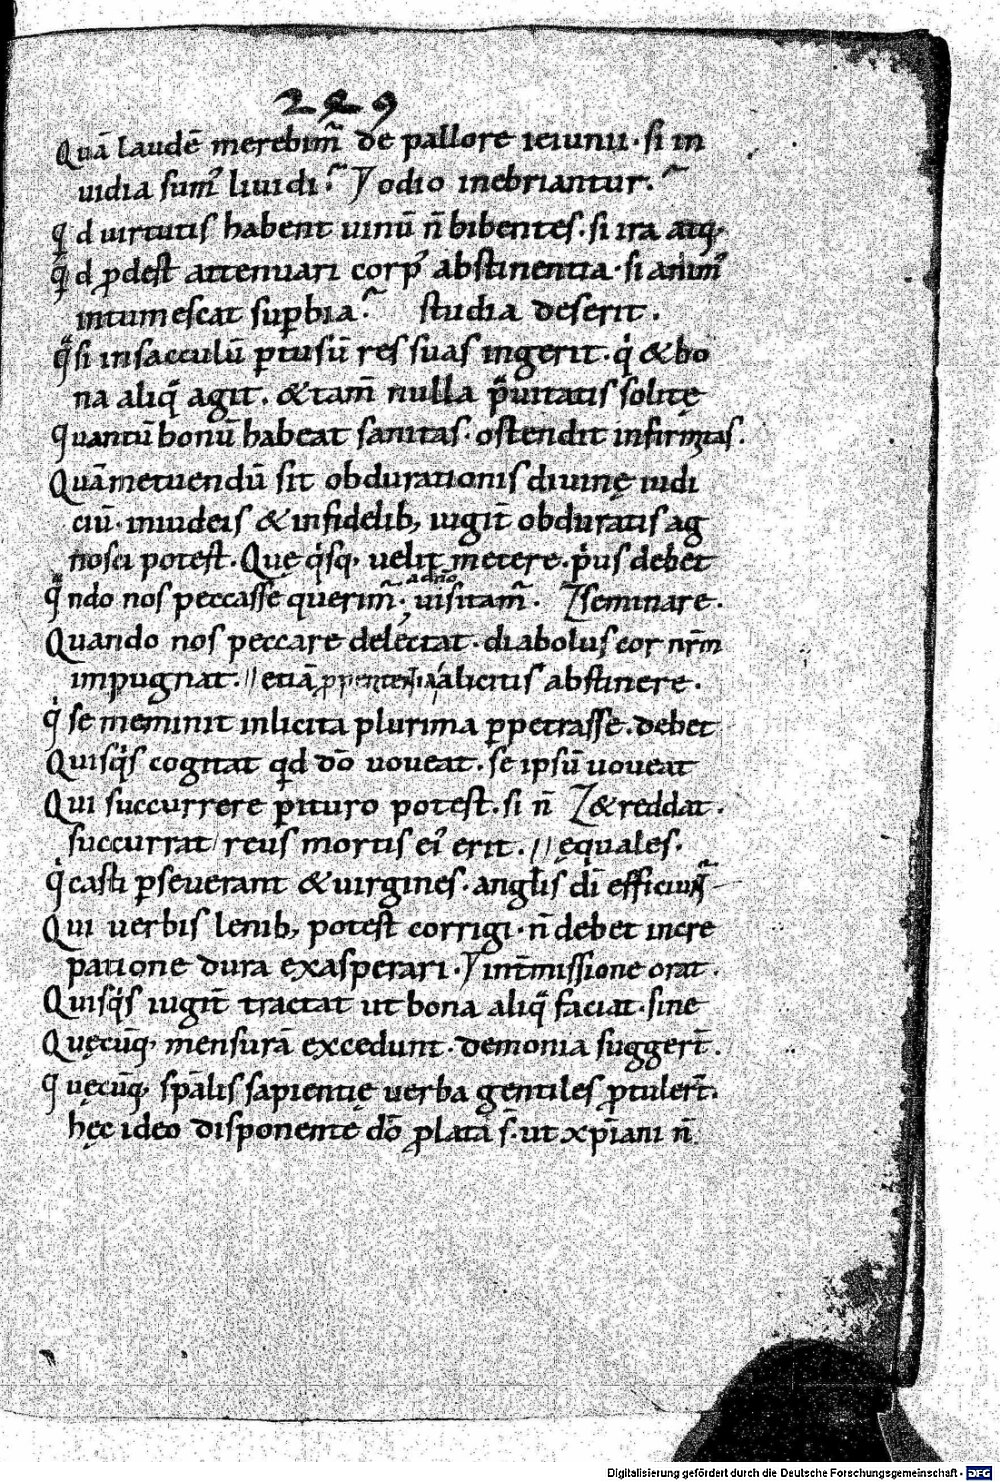 229
Quā laudē merebim̃ de pallore ieiunii. si in
uidia sum᷒ liuidi? odio inebriantur.
qd uirtutis habent uinū ñ bibentes. si ira atq;
qd ꝓdest attenuari corp᷒ abstinentia. si anim᷒
intumescat suꝑbia? studia deserit.
qͣsi in sacculū ꝑtusū res suas ingerit. qi & bo
na aliqͣ agit. & tam̄ nulla pͣuitatis solitę
Quantū bonū habeat sanitas. ostendit infirmitas.
Quā metuendū sit obdurationis diuinę iudi
ciū. in iudeis & infidelib; iugit̄ obduratis ag
nosci potest. Quę qisq; uelit metere. pius debet
qͣndo nos peccasse querim̃; uisitam̃. seminare.
Quando nos peccare delectat. diabolus cor nr̄m
impugnat. // etiā a licitis abstinere.
qi se meminit inlicita plurima ꝑpetrasse. debet
Quisqis cogitat qd dō uoueat. se ipsū uoueat
Qui succurrere ꝑituro potest. si ñ & reddat.
succurrat / reus mortis ei᷒ erit. // ęquales.
qi casti ꝑseuerant & uirgines. angl̄is dī efficiunt̃
Qui uerbis lenib; potest corrigi. ñ debet incre
patione dura exasperari. int̄missione orat.
Quisqis iugit̄ tractat ut bona aliqͣ faciat. sine
Quęcūq; mensurā excedunt. demonia suggerr̄t.
quęcūq; sp̄alis sapientię uerba gentiles ꝓtuler̄t.
hęc ideo disponente dō ꝓlata s̄. ut xp̄iani ñ
Digitalisierung gefördert durch die Deutsche Forschungsgemeinschaft - DFG